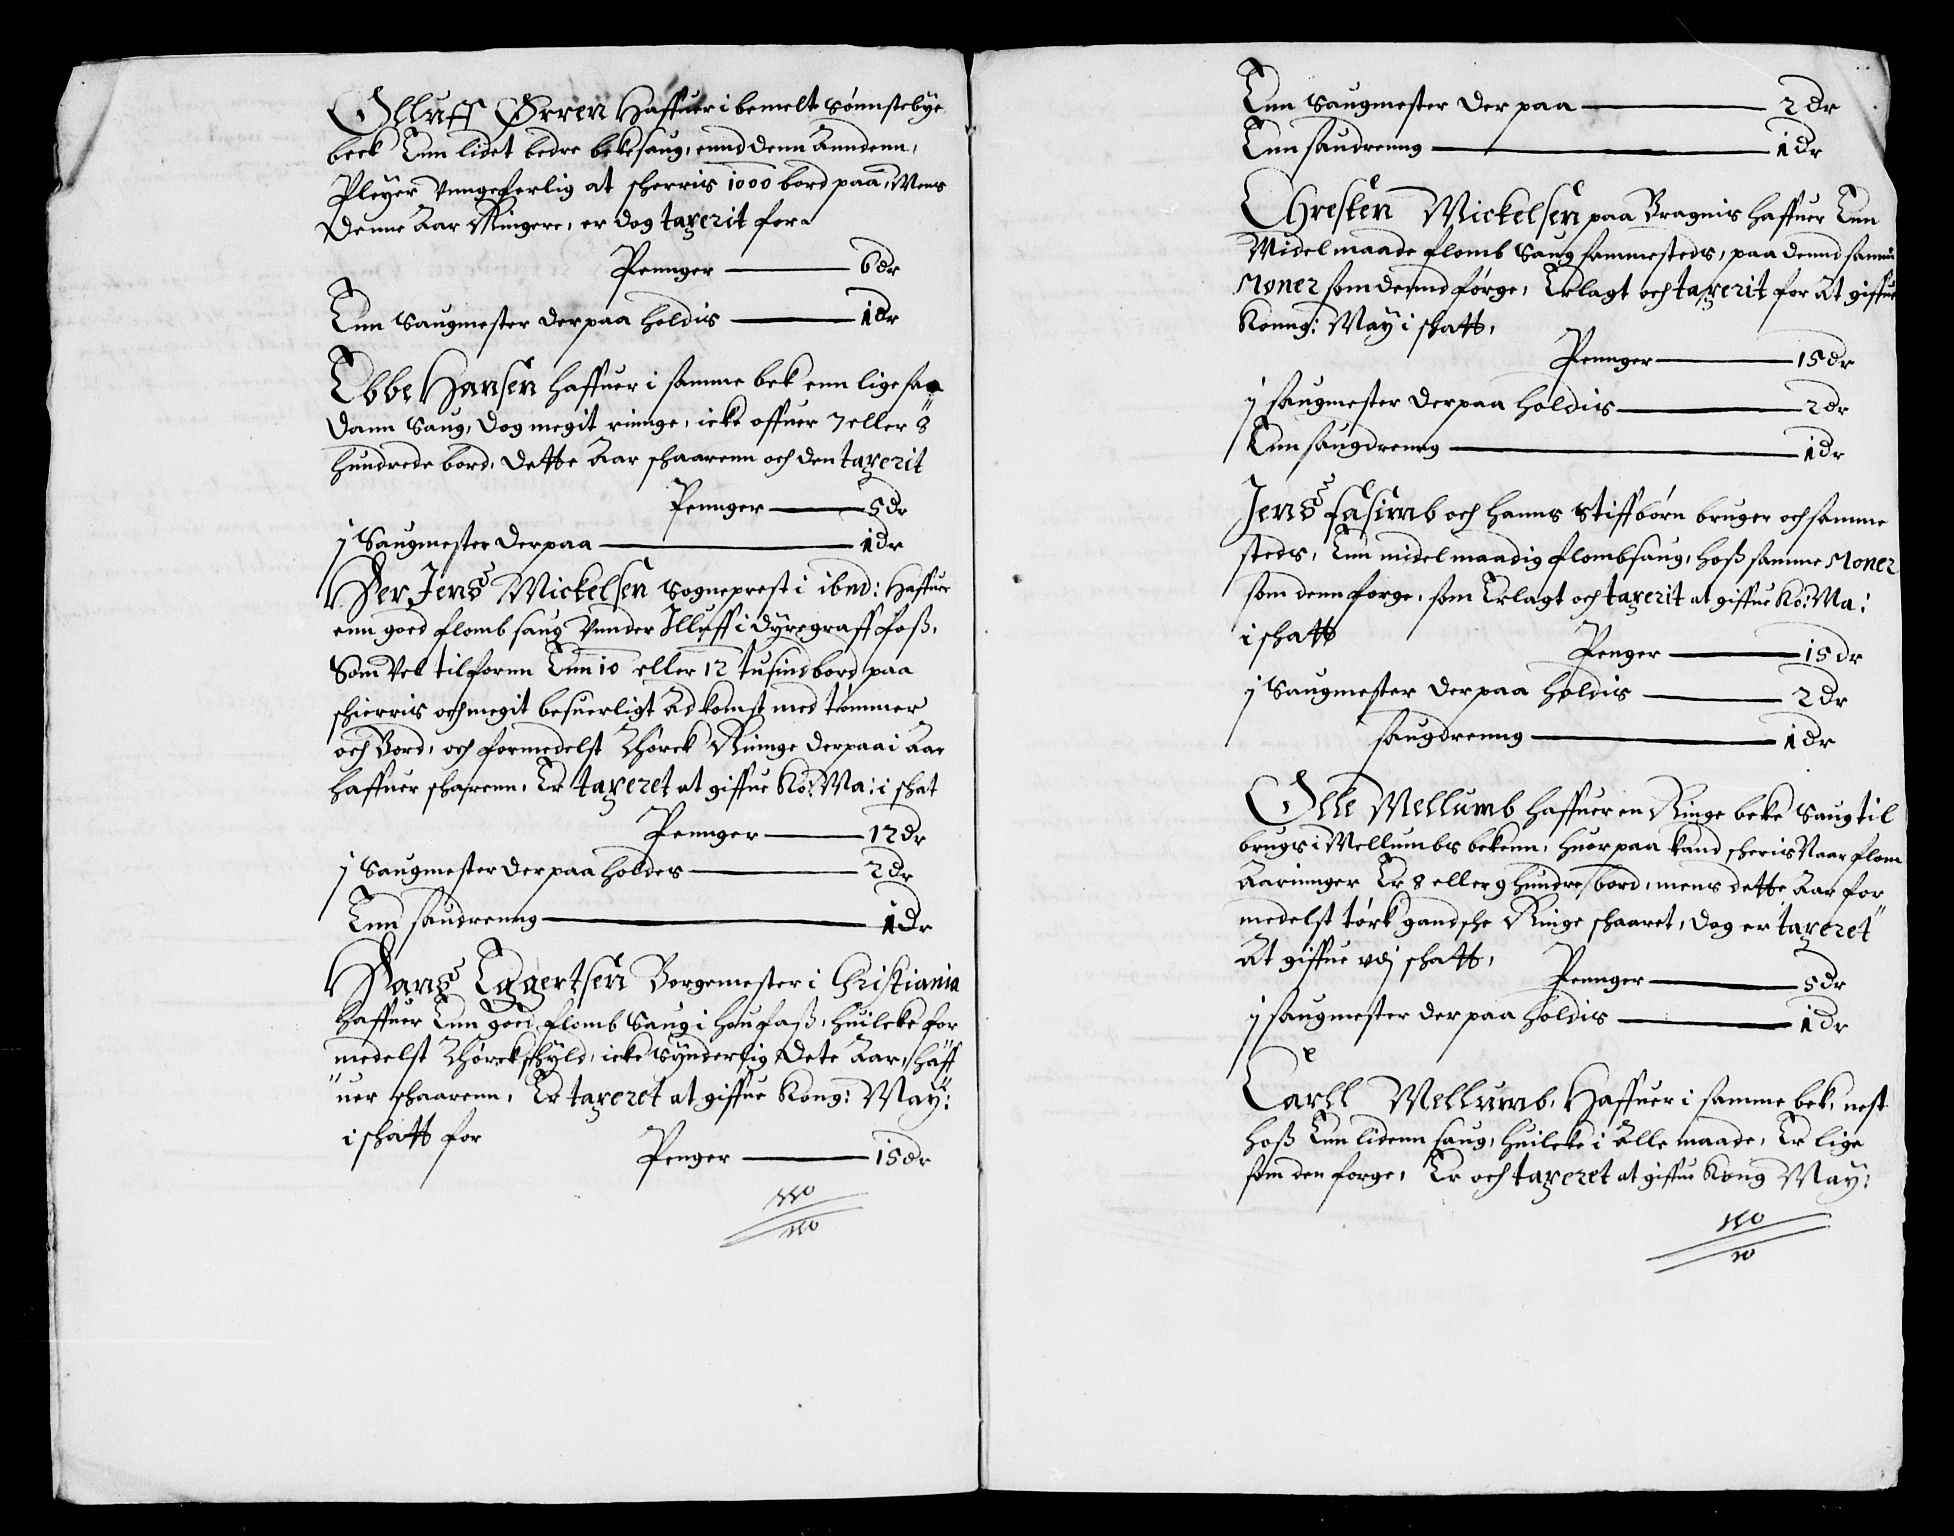 Olluff Ørren Haffuer i bemelte Sønnstebye
beck Enn lidet bedre bekesaug, ennd denn Anndenn,
Pleyer Vnngeferlig at scherris 1000 bord paa, Mens
Denne Aar Ringere, er dog taxerit for
Pennger 6 dr
Enn Saugmester derpaa holdis 1 dr
Ebbe Hansen haffuer i samme bek enn lige saa
dann Saug, dog megit rinnge, icke offuer 7 eller 8
hundrede bord, dette Aar schaarenn och den taxerit
Pennger 5 dr
j Saugmester derpaa 1 dr
Her Jens Mickelsen Sogneprest i ibnd: Haffuer
enn goed flomb saug Vnnder Illuff i dyregraff foß,
Som Vel tilfornn Enn 10 eller 12 tusind bord paa
schierris och megit besuerligt Adkomst med tømmer
och Bord, och formedelst Thørck Rinnge derpaa i Aar
haffuer scharenn, Er taxeret at giffue Ko: Ma: i schat
Pennger 12 dr
j Saugmester derpaa holdes 2 dr
Enn saudrenng 1 dr
Hans Eggertsen Borgemester i Christiania
haffuer Enn goed flomb Saug i Houfaß, huilcke for
medelst Thørck schyld, icke synderlig dete Aar, haff
"uer schaarenn, Er taxeret at giffue Kong: May:
i schatt for
Penger 15 dr
Enn Saugmester der paa 2 dr
Enn saudrenng 1 dr
Chresten Mickelsen paa Bragnis haffuer Enn
Midelmaade flomb Saug sammesteds, paa dennd samme
Maner som dennd førge, Erlagt och taxerit for At giffue
Konng: May i schatt,
Pennger 15 dr
j saugmester derpaa holdis 2 dr
Enn saugdrenng 1 dr
Jens fasimb och hanns Stiffbørn bruger och samme
steds, Enn midelmaadig flombsaug, hoß samme Maner
som denn førge, som Erlagt och taxerit at giffue Ko: Ma:
i schatt Penger 15 dr
j Saugmester derpaa holdis 2 dr
saugdrenng 1 dr
Olle Mellumb haffuer en Ringe beke Saug til
brugs i Mellumbs bekenn, huor paa kand scheris Naar flom
Aarinnger Er 8 eller 9 hundre bord, mens dette Aar for
medelst tørk gandsche Ringe schaaret, dog er taxeret
At giffue vdj schatt,
Pennger 5 dr
j saugmester derpaa holdis 1 dr
Carll Mellumb, Haffuer i samme bek, nest
hoß Enn lidenn saug, huilcke i Alle maade, Er lige
som den førge, Er och taxeret at giffue Kong May: